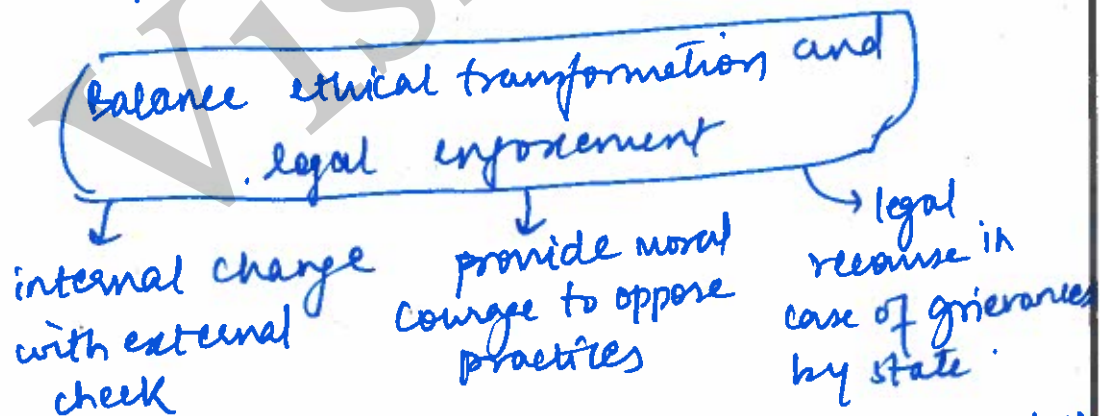 Balance ethical transformation and
legal enforcement
internal change
with external
check
provide moral
courage to oppose
practices
legal
recourse in
case of grievances
by state.